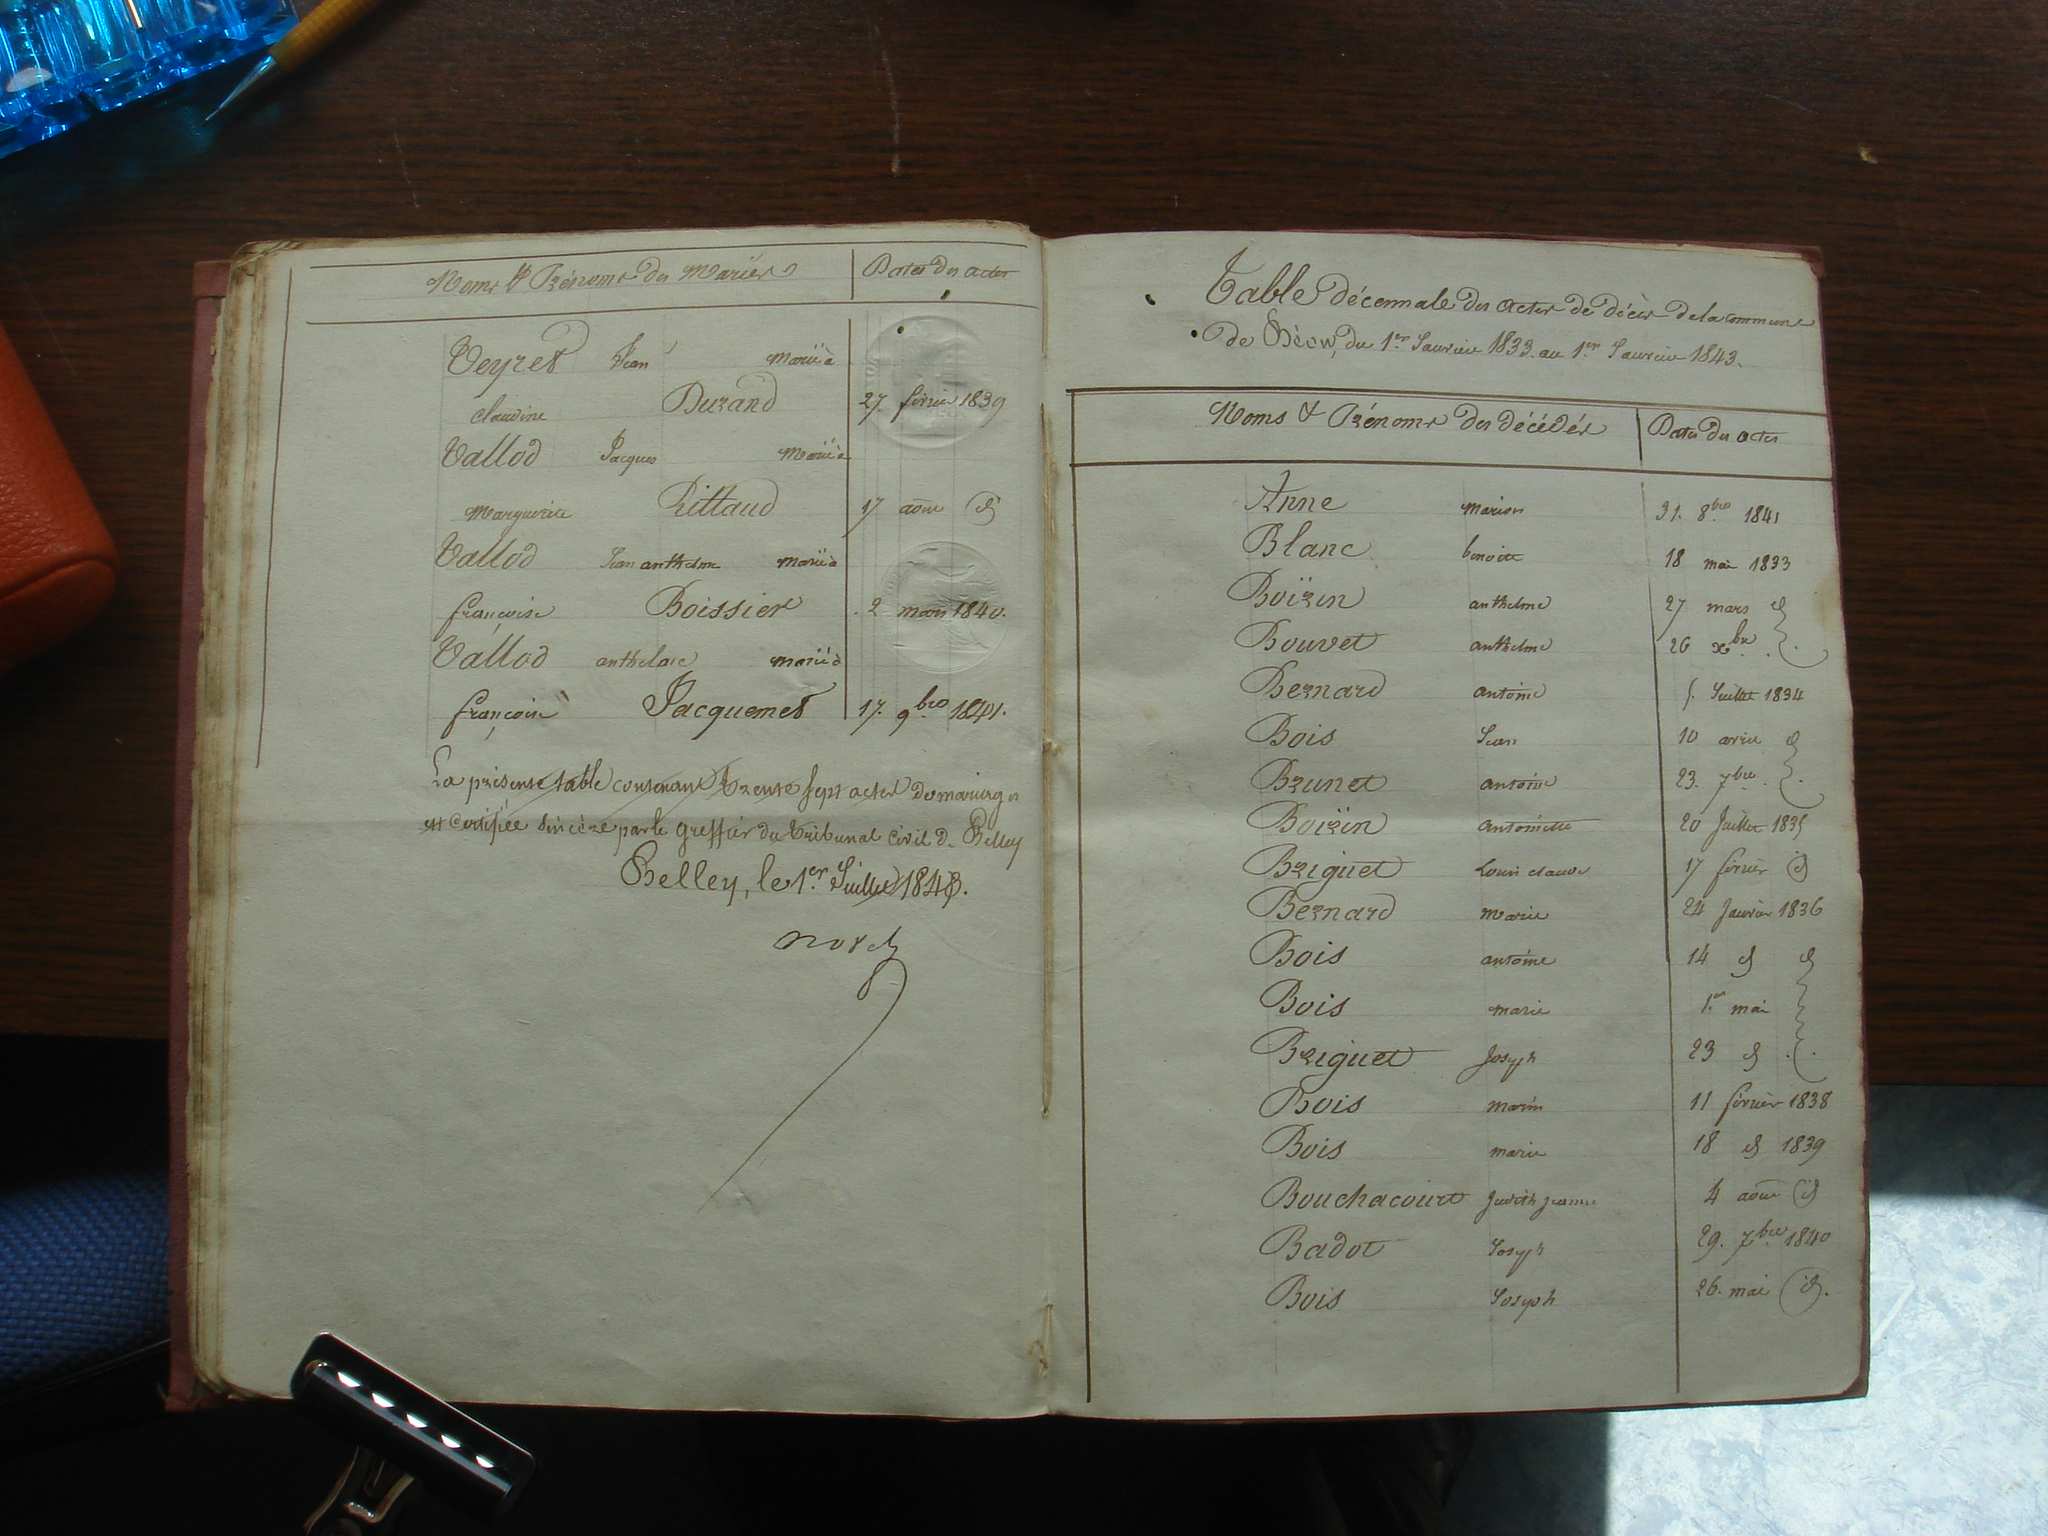 Noms & Prénoms des Mariés
Dates des actes
Veyret Jean Marié à
Claudine Durand 27 février 1839
Vallod Jacques Marié à
Marguerite Rittaud 17 août id
Vallod Jean anthelme marié à
françoise Boissier 2 mars 1840.
Vallod anthelme marié à
françoise Jacquemet 17. 9bre 1841.
La présente table contenant trente sept actes de mariages
est certifiée sincère par le greffier du tribunal civil de Belley
Belley, le 1er Juillet 1843.
Table décennale des actes de décès de la commune
de du 1er Janvier 1833 au 1er Janvier 1843.
Noms & Prénoms des décédés
Dates des actes
Anne marion 31. 8bre 1841
Blanc benoite 18 mai 1833
Boïzin anthelme 27 mars id
Bouvet anthelme 26 xbre
Bernard antoine 5. Juillet 1834
Bois Jean 10 avril id
Brunet antoine 23. 7bre
Boïzin antoinette 20 Juillet 1835
Briguet Louis claude 17 février id
Bernard marie 24 Janvier 1836
Bois antoine 14 id id
Bois marie 1er mai
Briguet Joseph 23 id
Bois marin 11 février 1838
Bois marie 18 id 1839
Bouchacourt Judith Jeanne 4 août id
Badot Joseph 29. 7bre 1840
Bois Joseph 26. mai id.